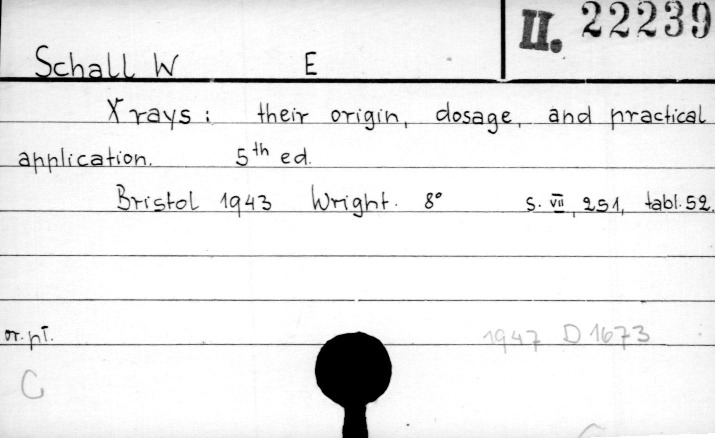 II. 22239
Schall W E
X rays: their origin, dosage, and practical
application. 5th ed.
Bristol 1943 Wright. 8° S. VII, 251, tabl. 52.
1947 D 1673
C